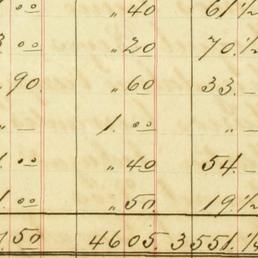 .00 „ 40 61.½
3 00 „ 20 70.½
90. „ 60 33. –
„ – 1. 00 „ –
1. 00 „ 40 54. –
1. 00 „ 50. 19.½
.50 4605. 3551.¼